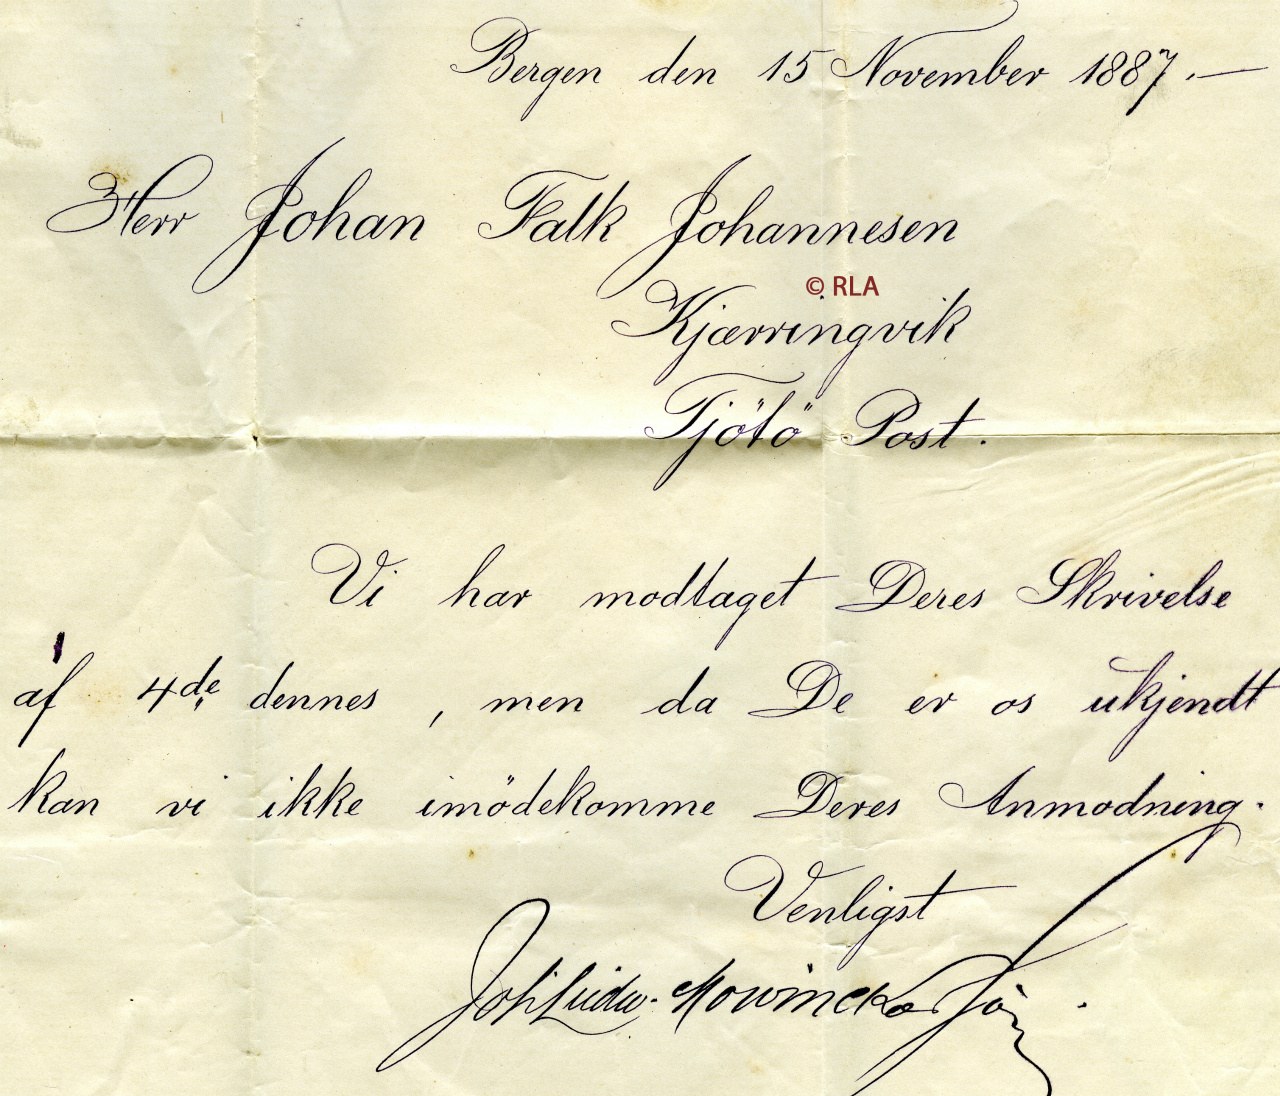 Bergen den 15 November 1887.—
Herr Johan Falk Johannesen
© RLA
Kjærringvik
Tjötö Post.
Vi har modtaget Deres Skrivelse
af 4de dennes, men da De er os ukjendt
kan vi ikke imödekomme Deres Anmodning.
Venligst
Joh Ludw. Mowinckel Jör